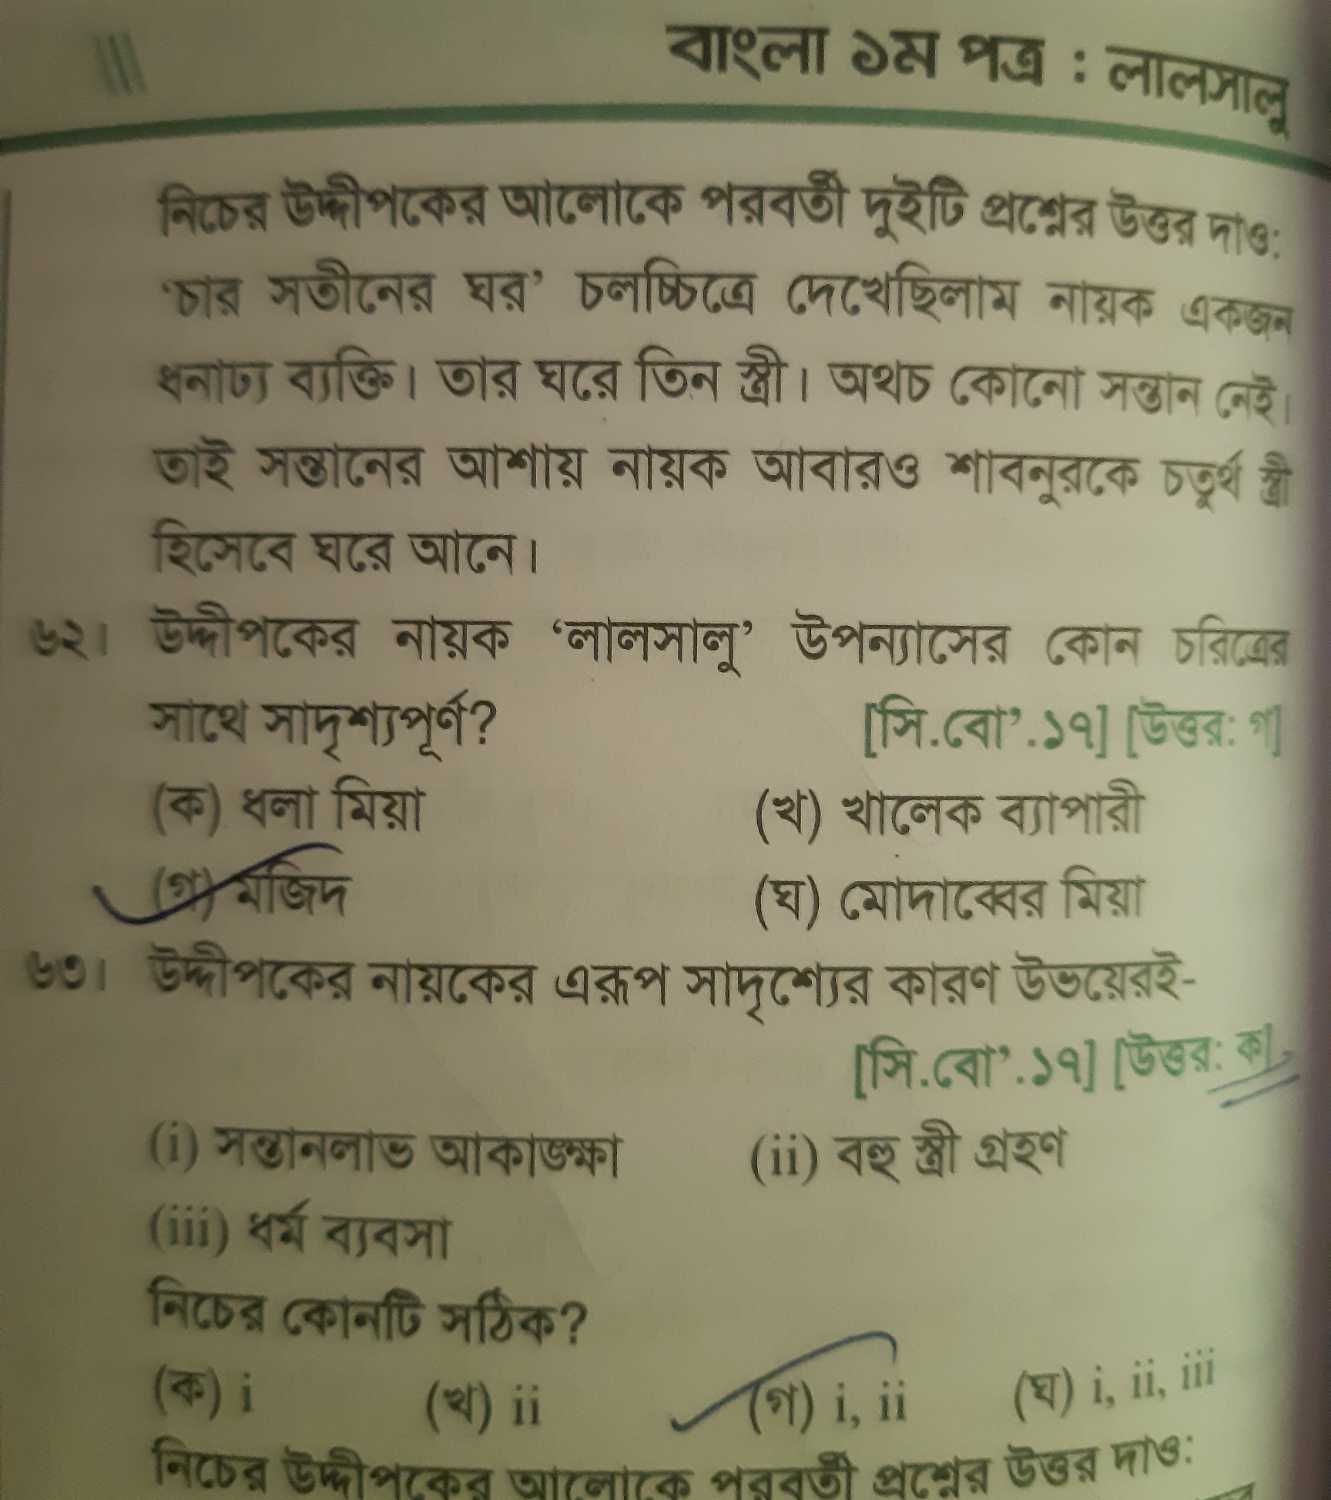 বাংলা ১ম পত্র : লালসালু
নিচের উদ্দীপকের আলোকে পরবর্তী দুইটি প্রশ্নের উত্তর দাও:
‘চার সতীনের ঘর’ চলচ্চিত্রে দেখেছিলাম নায়ক একজন
ধনাঢ্য ব্যক্তি। তার ঘরে তিন স্ত্রী। অথচ কোনো সন্তান নেই।
তাই সন্তানের আশায় নায়ক আবারও শাবনুরকে চতুর্থ স্ত্রী
হিসেবে ঘরে আনে।
৬২। উদ্দীপকের নায়ক ‘লালসালু’ উপন্যাসের কোন চরিত্রের
সাথে সাদৃশ্যপূর্ণ? [সি.বো’.১৭] [উত্তর: গ]
(ক) ধলা মিয়া (খ) খালেক ব্যাপারী
(গ) মজিদ (ঘ) মোদাব্বের মিয়া
৬৩। উদ্দীপকের নায়কের এরূপ সাদৃশ্যের কারণ উভয়েরই-
[সি.বো’.১৭] [উত্তর: ক]
(i) সন্তানলাভ আকাঙ্ক্ষা (ii) বহু স্ত্রী গ্রহণ
(iii) ধর্ম ব্যবসা
নিচের কোনটি সঠিক?
(ক) i (খ) ii (গ) i, ii (ঘ) i, ii, iii
নিচের উদ্দীপকের আলোকে পরবর্তী প্রশ্নের উত্তর দাও: